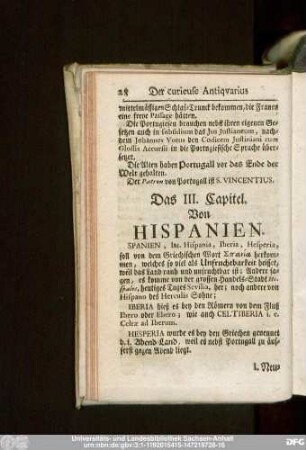 28 Der curieuse Antiqvarius
mittelmäßigen Schlaff-Trunck bekommen, die Frauen
eine freye Passage hätten.
Die Portugiesen brauchen nebst ihren eigenen Ge-
setzen auch in subsidium das Jus Justinianeum, nach-
dem Johannes Vonus den Codicem Justiniani cum
Glossis Accursii in die Portugiesische Sprache über-
setzet.
Die Alten haben Portugall vor das Ende der
Welt gehalten.
Der Patron von Portugall ist S. VINCENTIUS.
Das III. Capitel.
Von
HISPANIEN.
SPANIEN, lat. Hispania, Iberia, Hesperia,
soll von dem Griechischen Wort herkom-
men, welches so viel als Unfruchtbarkeit heisset,
weil das Land rauh und unfruchtbar ist: Andere sa-
gen, es komme von der grossen Handels-Stadt His-
palis, heutiges Tages Sevilia, her; noch andere von
Hispano des Herculis Sohne;
IBERIA hieß es bey den Römern von dem Fluß
Ibero oder Ebero; wie auch CELTIBERIA i. e.
Celtæ ad Iberum.
HESPERIA wurde es bey den Griechen genennet
d. i. Abend-Land, weil es nebst Portugall zu äus-
serst gegen Abend liegt.
1. Neu
Universitäts- und Landesbibliothek Sachsen-Anhalt
urn:nbn:de:gbv:3:1-1192015415-147219728-16
DFG